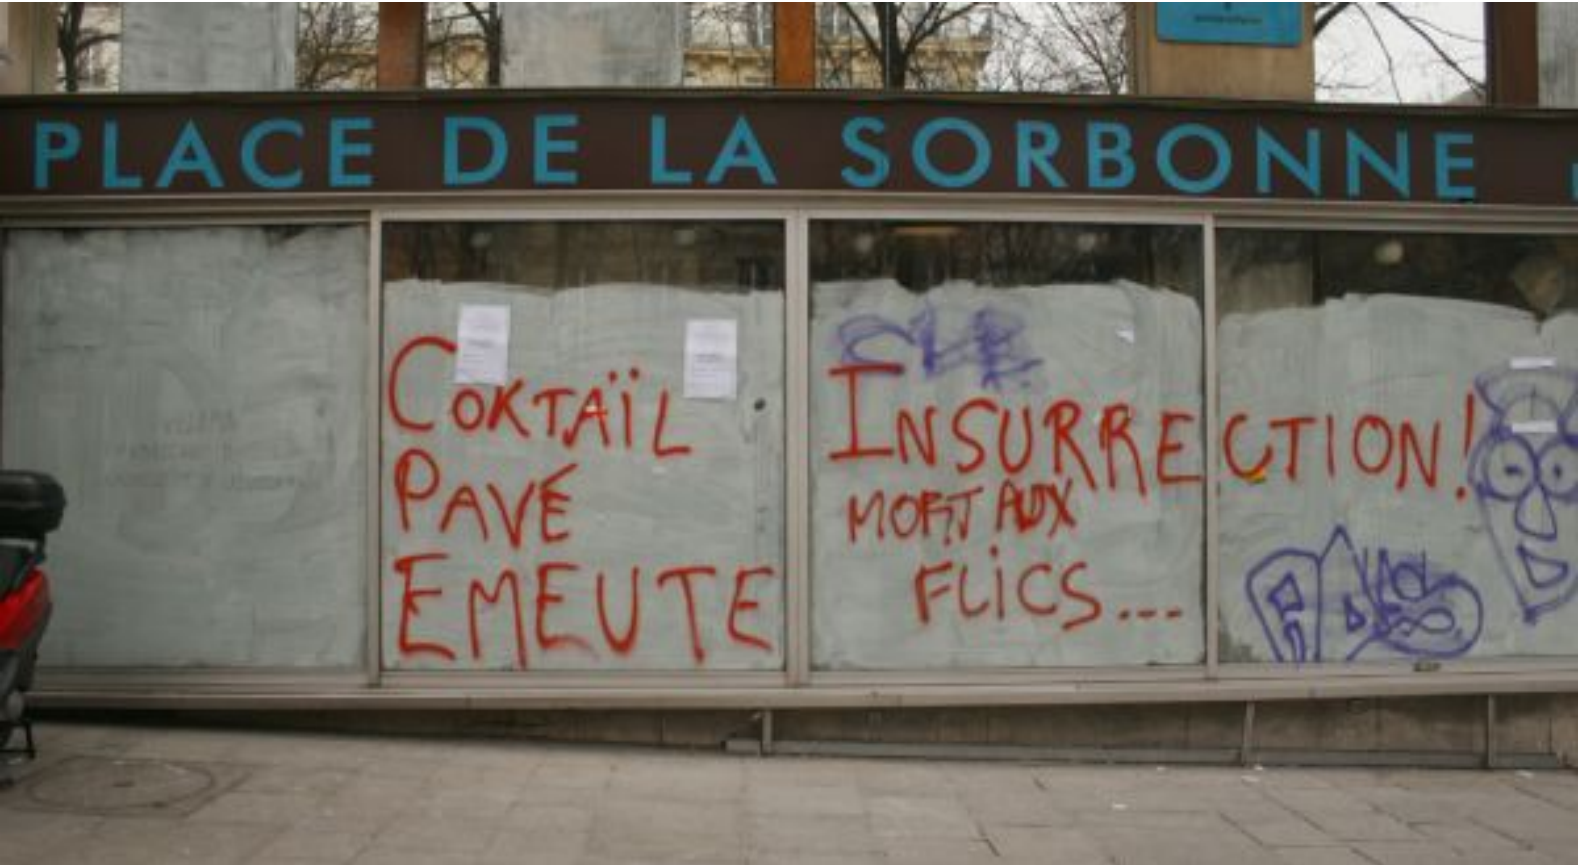 PLACE DE LA SORBONNE
COKTAÏL
PAVÉ
EMEUTE
INSURRECTION!
MORT AUX
FLiCS...